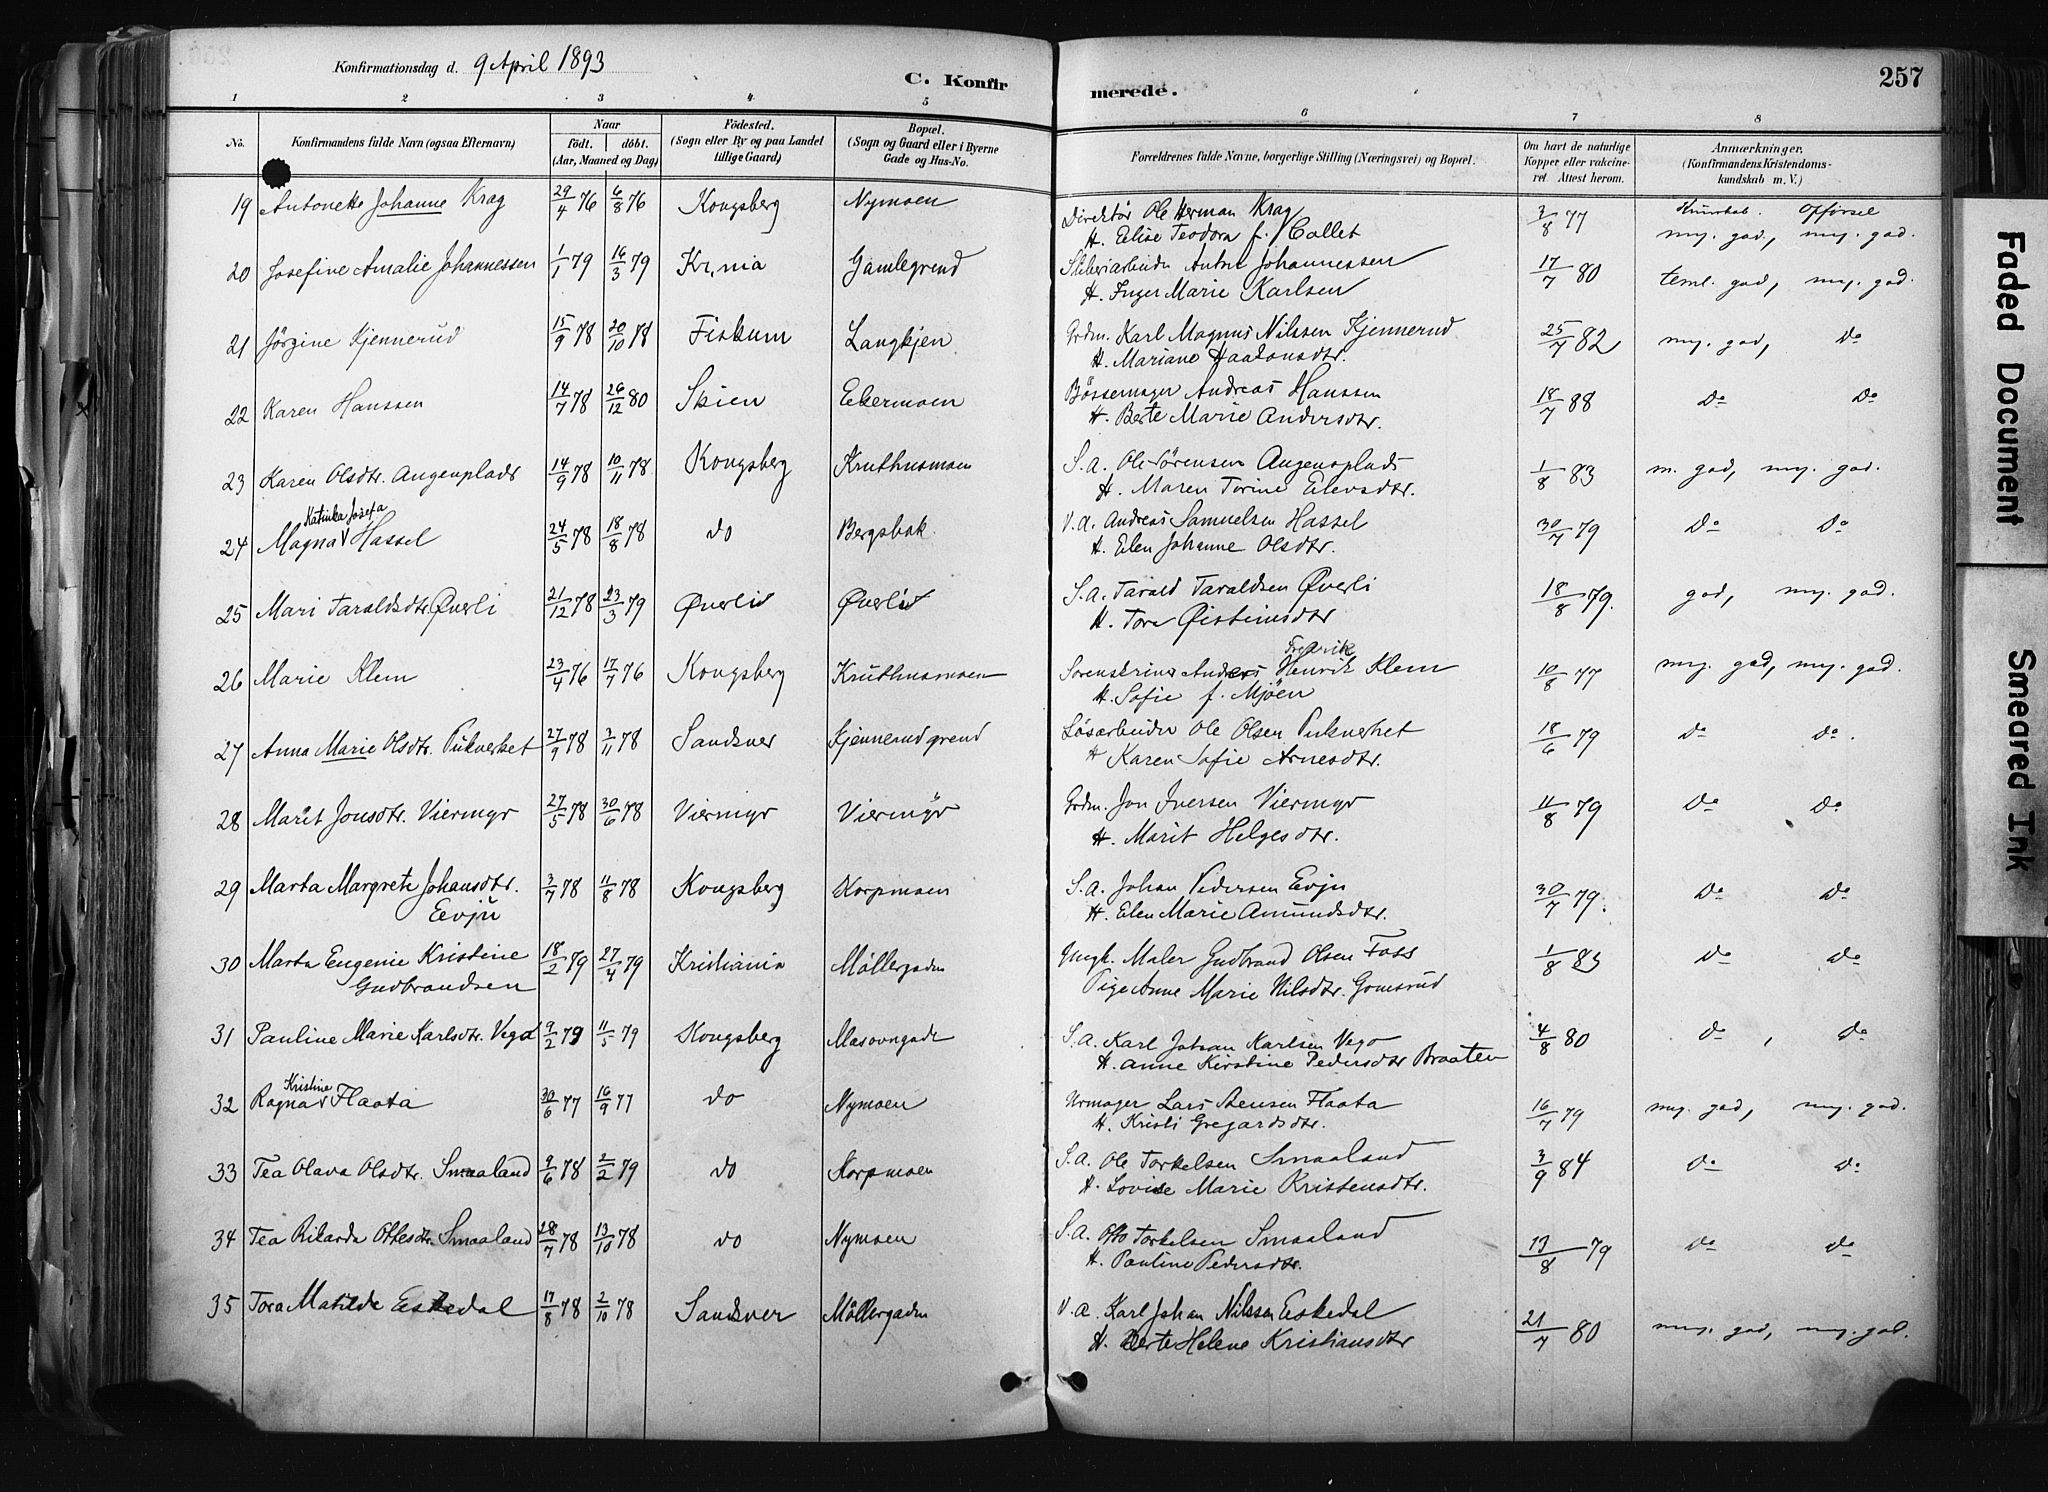 Konfirmationsdag d. 9 April 1893 C. Konfirmerede. 257
1 2 3 4 5 6 7 8
No. Konfirmandens fulde Navn (ogsaa Efternavn) Naar födt. döbt. (Aar, Maaned og Dag) Födested. (Sogn eller By og paa Landet tillige Gaard) Bopæl. (Sogn og Gaard eller i Byerne Gade og Hus-No. Forældrenes fulde Navne, borgerlige Stilling (Næringsvei) og Bopæl. Om havt de naturlige Kopper eller vakcineret. Attest herom. Anmærkninger. (Konfirmandens Kristendomskundskab m. V.)
19 Antonette Johanne Krag 29/4 76 6/8 76 Kongsberg Nymoen Direktör Ole Herman Krag 3/8 77 Kundskab. Opförsel
H. Elise Teodora f. Collet meg. god, meg. god.
20 Josefine Amalie Johannessen 1/1 79 16/3 79 Kr.nia Gamlegrend Sliberiarbeider Anton Johannessen 17/7 80 teml. god, meg. god.
H. Inger Marie Karlsen
21 Jörgine Kjennerud 15/9 78 20/10 78 Fiskum Langkjen Grdm. Karl Magnus Nilssen Kjennerud 25/7 82 meg. god, Do
H. Mariane Haakonsdtr.
22 Karen Hanssen 14/7 78 26/12 80 Skien Ekermoen Bössemager Andreas Hanssen 18/7 88 Do Do
H. Berte Marie Andersdtr.
23 Karen Olsdtr. Augenplads 14/9 78 10/11 78 Kongsberg Kruthusmoen S.A. Ole Sörensen Augensplads 1/8 83 m. god, meg. god.
H. Maren Torine Elevsdtr.
Katinka Josefa
24 Magna V Hassel 24/5 78 18/8 78 do Bergsbak. V.A. Andreas Samuelsen Hassel 30/7 79 Do Do
H. Elen Johanne Olsdtr.
25 Mari Taraldsdtr. Øverli 21/12 78 23/3 79 Øverlid Øverlid S.A. Tarald Taraldsen Øverli 18/8 79. god, meg. god.
H. Tore Øisteinsdtr
Fredrik
26 Marie Klem 23/4 76 17/7 76 Kongsberg Kruthusmoen Sorenskriver Anders Henrik Klem 10/8 77 meg. god, meg. god.
H. Sofie f. Mjöen
27 Anna Marie Olsdtr. Pukverket 27/9 78 3/11 78 Sandsver Kjennerudgrend Lösarbeider Ole Olsen Pukverket 18/6 79 Do Do.
H Karen Sofie Arnesdtr.
28 Marit Jonsdtr. Viermyr 27/5 78 30/6 78 Viermyr Viermyr Grdm. Jon Iversen Viermyr 11/8 79 Do Do
H. Marit Helgesdtr.
29 Marta Margrete Johansdtr. 3/7 78 11/8 78 Kongsberg Korpmoen S.A. Johan Pedersen Evju 30/7 79. Do Do
Eevju H. Elen Marie Amundsdtr.
30 Marta Eugenie Kristine 18/2 79 27/4 79 Kristiania Möllergaden Ungk. Maler Gudbrand Olsen Foss 1/8 83 Do Do
Gudbrandsen Pige Anne Marie Nilsdtr. Gomsrud
31 Pauline Marie Karlsdtr. Vego 9/2 79 11/5 79 Kongsberg Masovngade S.A. Karl Johan Karlsen Vego 4/8 80 Do, Do
H. Anne Kirstine Pedersdtr Braaten
Kristine
32 Ragna V Flaata 30/6 77 16/9 77 do Nymoen Urmager Lars Stensen Flaata 16/7 79 meg. god, meg. god.
H. Kristi Gregardsdtr.
33 Tea Olava Olsdtr. Smaaland 9/6 78 2/2 79 do Korpmoen S.A. Ole Torkelsen Smaaland 3/9 84 Do Do
H. Lovise Marie Kristensdtr.
34 Tea Rikarda Ottesdtr. Smaaland 28/7 78 13/10 78 do Nymoen S.A. Otto Torkelsen Smaaland 13/8 79 Do Do
H. Pauline Pedersdtr.
35 Tora Matilde Eskedal 17/8 78 2/10 78 Sandsver Möllergaden V.A. Karl Johan Nilssen Eskedal 21/7 80 meg. god, meg. god.
H. Berte Helene Kristiansdtr
Faded Document
Smeared Ink